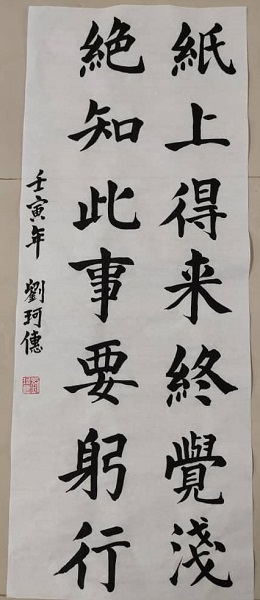 紙上得来終覺淺
絶知此事要躬行
壬寅年 劉珂僡